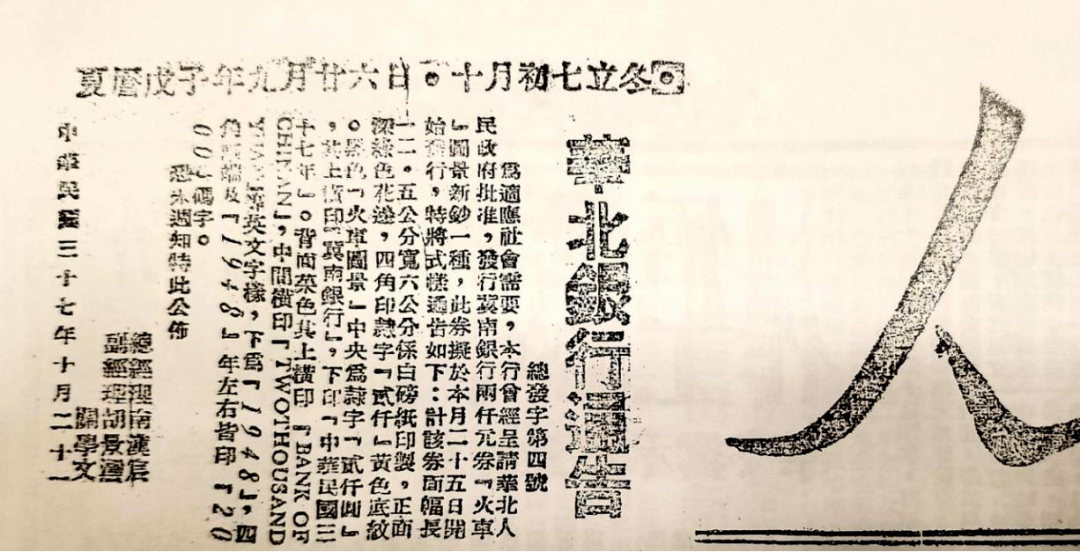 人
夏曆戊子年九月廿六日。十月初七立冬
華北銀行通告
總發字第四號
爲適應社會需要,本行曾經呈請華北人
民政府批准,發行冀南銀行兩仟元券『火車
』圖景新鈔一種,此券擬於本月二十五日開
始發行,特將式樣通告如下:計該券面幅長
一二。五公分寬六公分係白磅紙印製,正面
深綠色花邊,四角印隸字『貳仟』黃色底紋
。黑色『火車圖景』中央爲隸字『貳仟圓』
,其上橫印『冀南銀行』,下印『中華民國三
十七年』。背面菜色其上橫印『BANK OF
CHINAN』,中間橫印『TWOTHOUSAND
YUAN』等英文字樣,下爲『1948』,四
角 端及『1948』年左右皆印『20
00』碼字。
恐未週知特此公佈
總經理南漢宸
副經理胡景澐
關學文
中華民國三十七年十月二十一